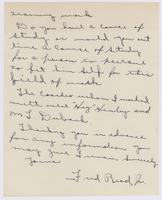 training work
Do you have a course of
study or would you out
line a course of study
for a person to persue
to fit him self for this
field of work
The coaches whom I worked
with were "Hoy" Henley and
M L Durback
Thanking you in advance
for any information you
may give I am sincerely
Yours
Fred Reed, Jr.